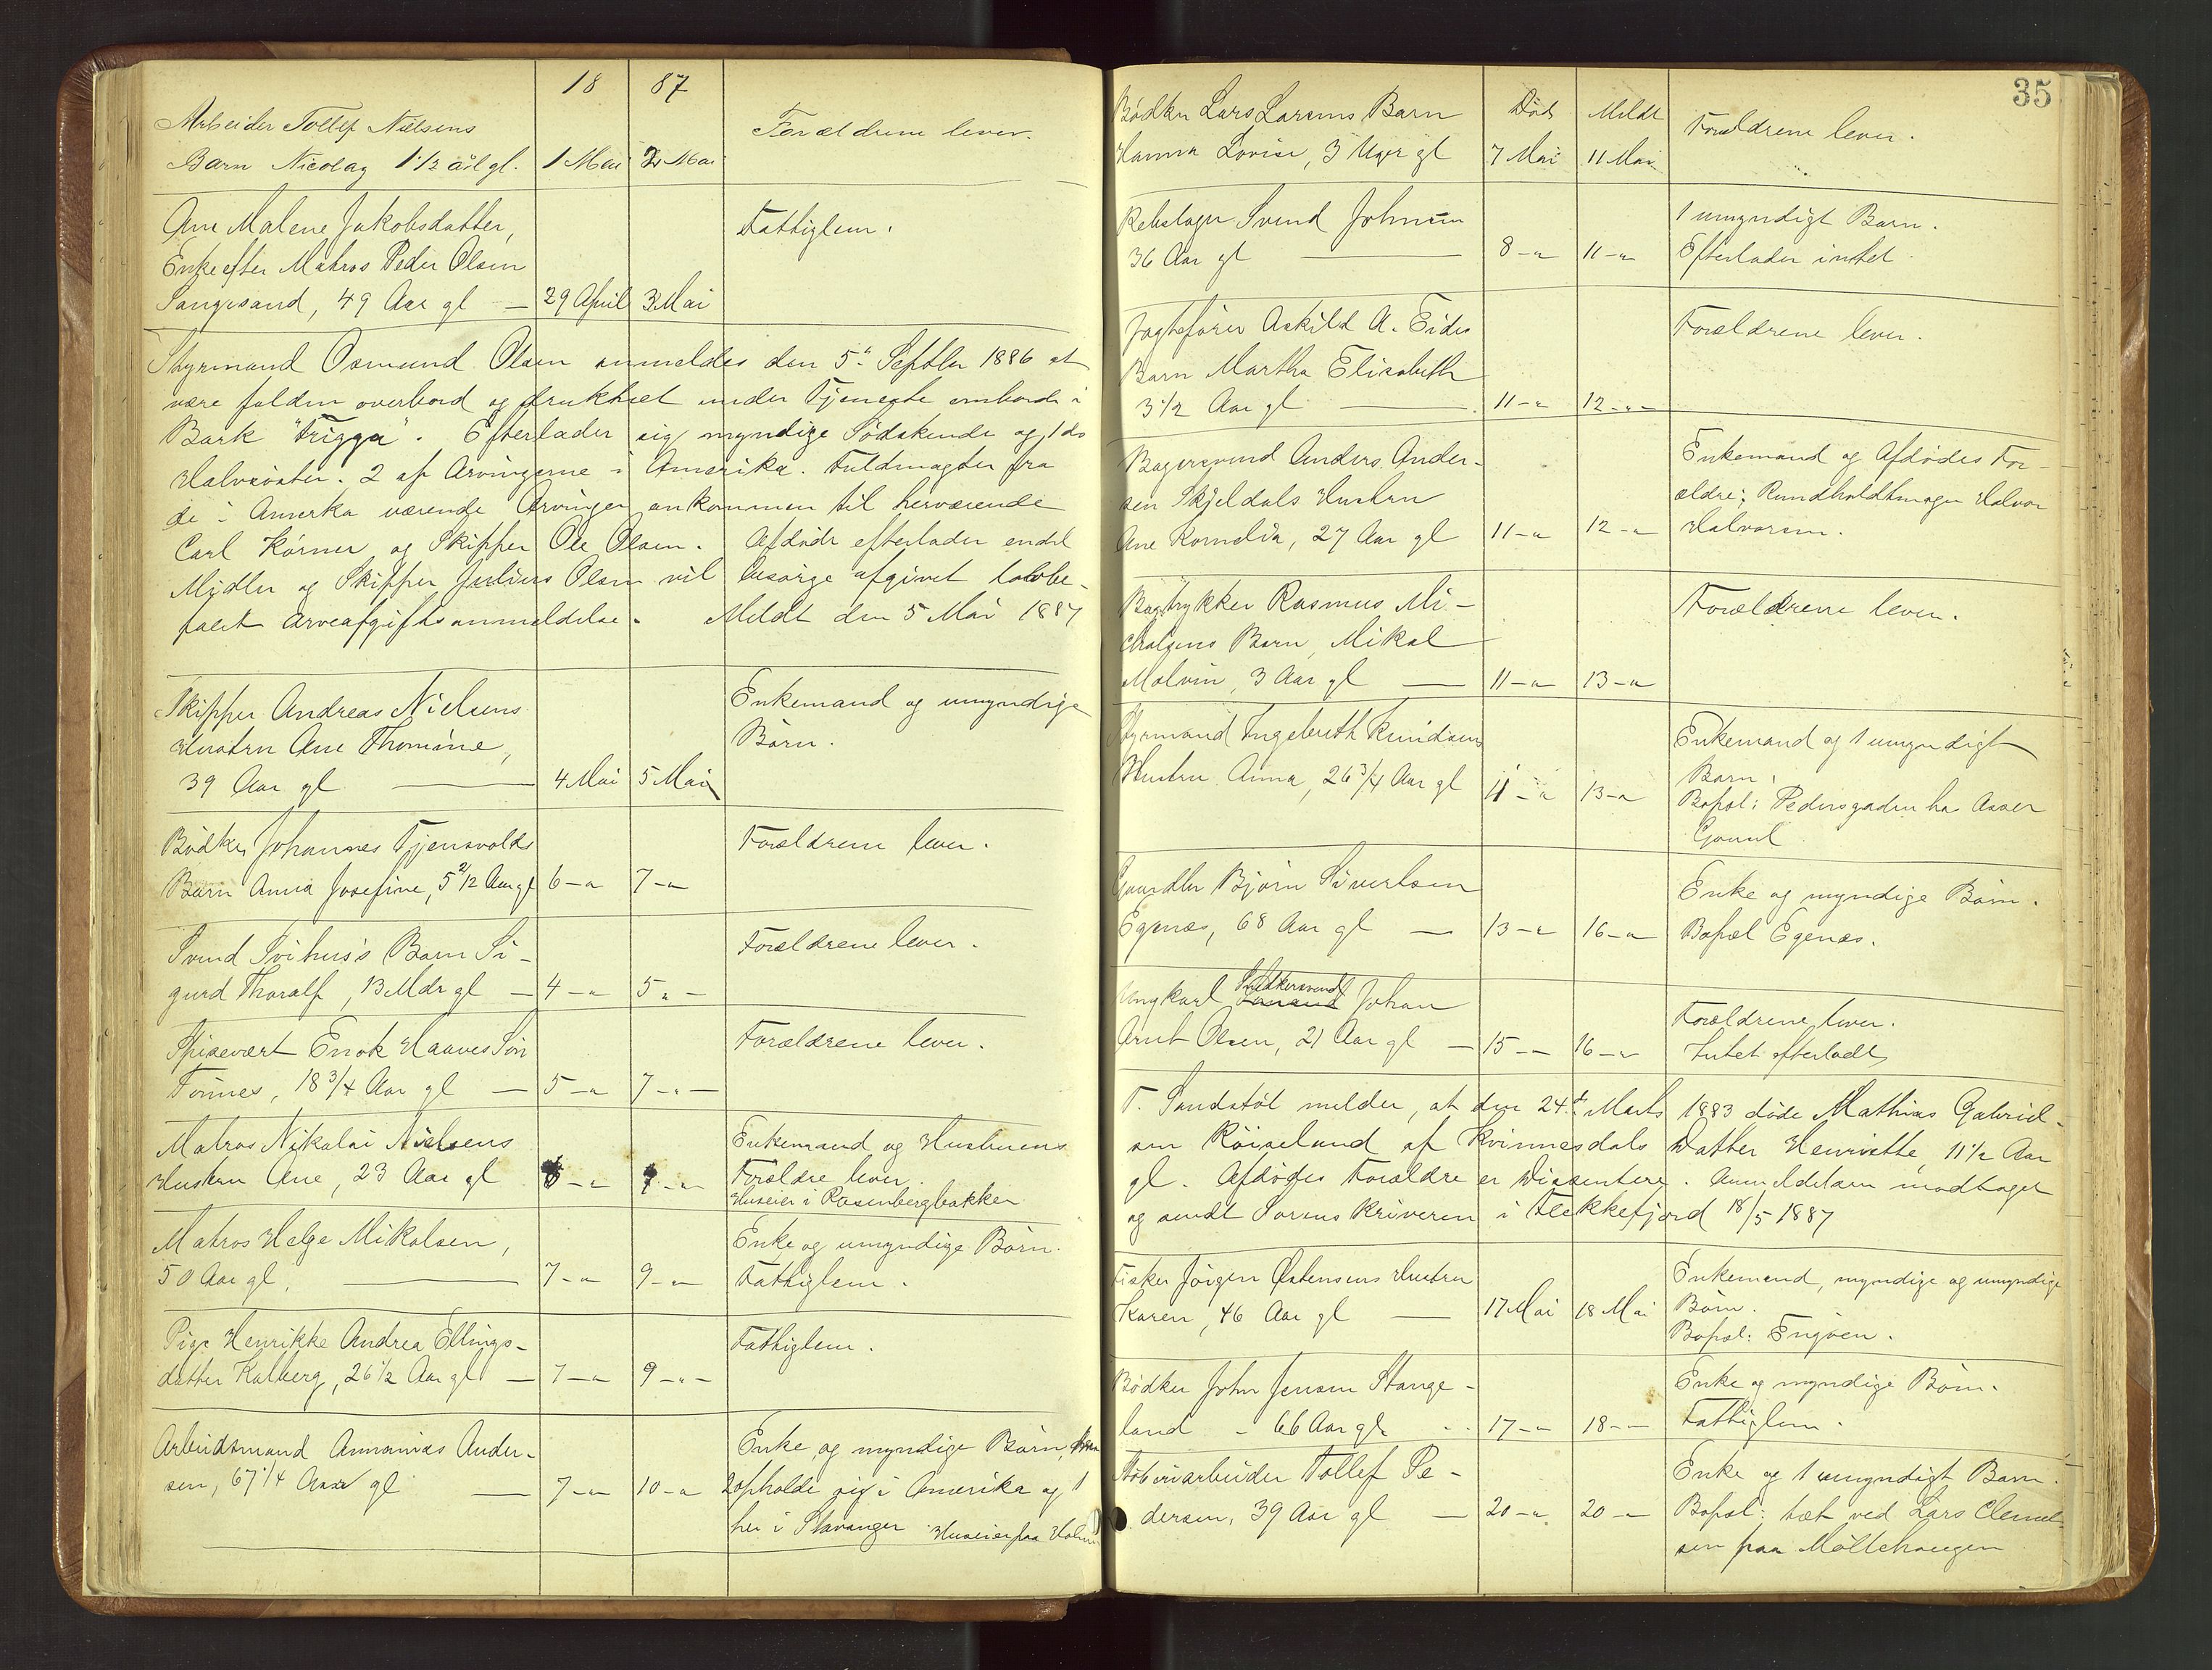 18 87
Arbeider Tollef Nielsens
Barn Nicolay 1 1/2 år gl. 1 Mai 2 Mai
Forældrene lever.
Ane Malene Jakobsdatter,
Enke efter Matros Peder Olsen
Sangesand, 49 Aar gl — 29 April 3 Mai
Fattiglem.
Styrmand Osmund Olsen anmeldes den 5te Septbr 1886 at
være falden overbord og druknet under Tjeneste ombord i
Bark "Frigga". Efterlader sig myndige Södskende og 1 do
Halvsöster. 2 af Arvingerne i Amerika. Fuldmagter fra
de i Amerika værende Arvinger ankommen til herværende
Carl Körner og Skipper Ole Olsen. Afdöde efterlader endel
Midler og Skipper Julius Olsen vil besörge afgivet lovbe-
falet Arveafgiftsanmeldelse. Meldt den 5 Mai 1887
Skipper Andreas Nielsens
Hustru Ane Thomine,
39 Aar gl — 4 Mai 5 Mai
Enkemand og umyndige
Börn.
Bödker Johannes Tjensvolds
Barn Anna Josefine, 5 2/12 Aar gl 6 - " 7 - "
Forældrene lever.
Svend Svihus's Barn Si-
gurd Thoralf, 13 Mdr gl — 4 - " 5 " -
Forældrene lever.
Spisevært Enok Haaves Sön
Tönnes, 18 3/4 Aar gl — 5 - " 7 - " -
Forældrene lever.
Matros Nikolai Nielsens
Hustru Ane, 23 Aar gl - " - "
Enkemand og Hustruens
Forældre lever.
Huseier i Rosenbergbakken
Matros Helge Mikalsen,
50 Aar gl, — 7 - " 9 - "
Enke og umyndige Börn.
Fattiglem.
Pige Henrikke Andrea Ellings-
datter Kalberg, 26 1/2 Aar gl — 7 - " 9 - " -
Fattiglem.
Arbeidsmand Annanias Ander-
sen, 67 1/4 Aar gl — 7 - " 10 - "
Enke og myndige Börn,
2 opholde sig i Amerika og 1
her i Stavanger Huseier paa
35
Bödker Lars Larsens Barn
Hanna Lovise, 3 Uger gl
Död 7 Mai Meldt 11 Mai
Forældrene lever.
Rebslager Svend Johnsen
36 Aar gl — 8 - " 11 - "
1 umyndigt Barn.
Efterlader intet.
Jagtefører Askild A. Eides
Barn Martha Elisabeth
3 1/2 Aar gl — 11 - " 12 - " -
Forældrene lever.
Bagersvend Anders Ander-
sen Skjeldals Hustru
Ane Kornelia, 27 Aar gl 11 - " 12 - "
Enkemand og Afdödes For-
ældre: Rundholdtmager Halvor
Halvorsen.
Bogtrykker Rasmus Mi-
chalsens Barn, Mikal
Malvin, 3 Aar gl — 11 - " 13 - "
Forældrene lever.
Styrmand Ingebreth Knudsens
Hustru Anna, 26 3/4 Aar gl 11 - " 13 - "
Enkemand og 1 umyndigt
Barn.
Bopæl: Pedersgaden hos Asser
Bjørn Sivertsen
Egenæs, 68 Aar gl — 13 - " 16 - "
Enke og myndige Börn.
Bopæl Egenæs.
Ungkarl Johan
Arnt Olsen, 21 Aar gl — 15 - " 16 - "
Forældrene lever.
Intet efterladt
T. Sandstöl melder, at den 24de Marts 1883 döde Mathias Gabriel-
sen Röiselund af Kvinnesdals Datter Henriette, 11 1/2 Aar
gl. Afdödes Forældre er Dissentere. Anmeldelsen modtaget
og sendt Sorenskriveren i Flekkefjord 18/5 1887
Fisker Jörgen Östensens Hustru
Karen, 46 Aar gl — 17 Mai 18 Mai
Enkemand, myndige og umyndige
Börn.
Bopæl: Engöen.
Bödker John Jensen Stange-
land - 66 Aar gl 17 - " 18 - -
Enke og myndige Börn.
Fattiglem.
Støberiarbeider Tollef Pe-
dersen, 39 Aar gl — 20 - " 20 - "
Enke og 1 umyndigt Barn.
Bopæl: tæt ved Lars Clemet-
sen paa Möllehaugen